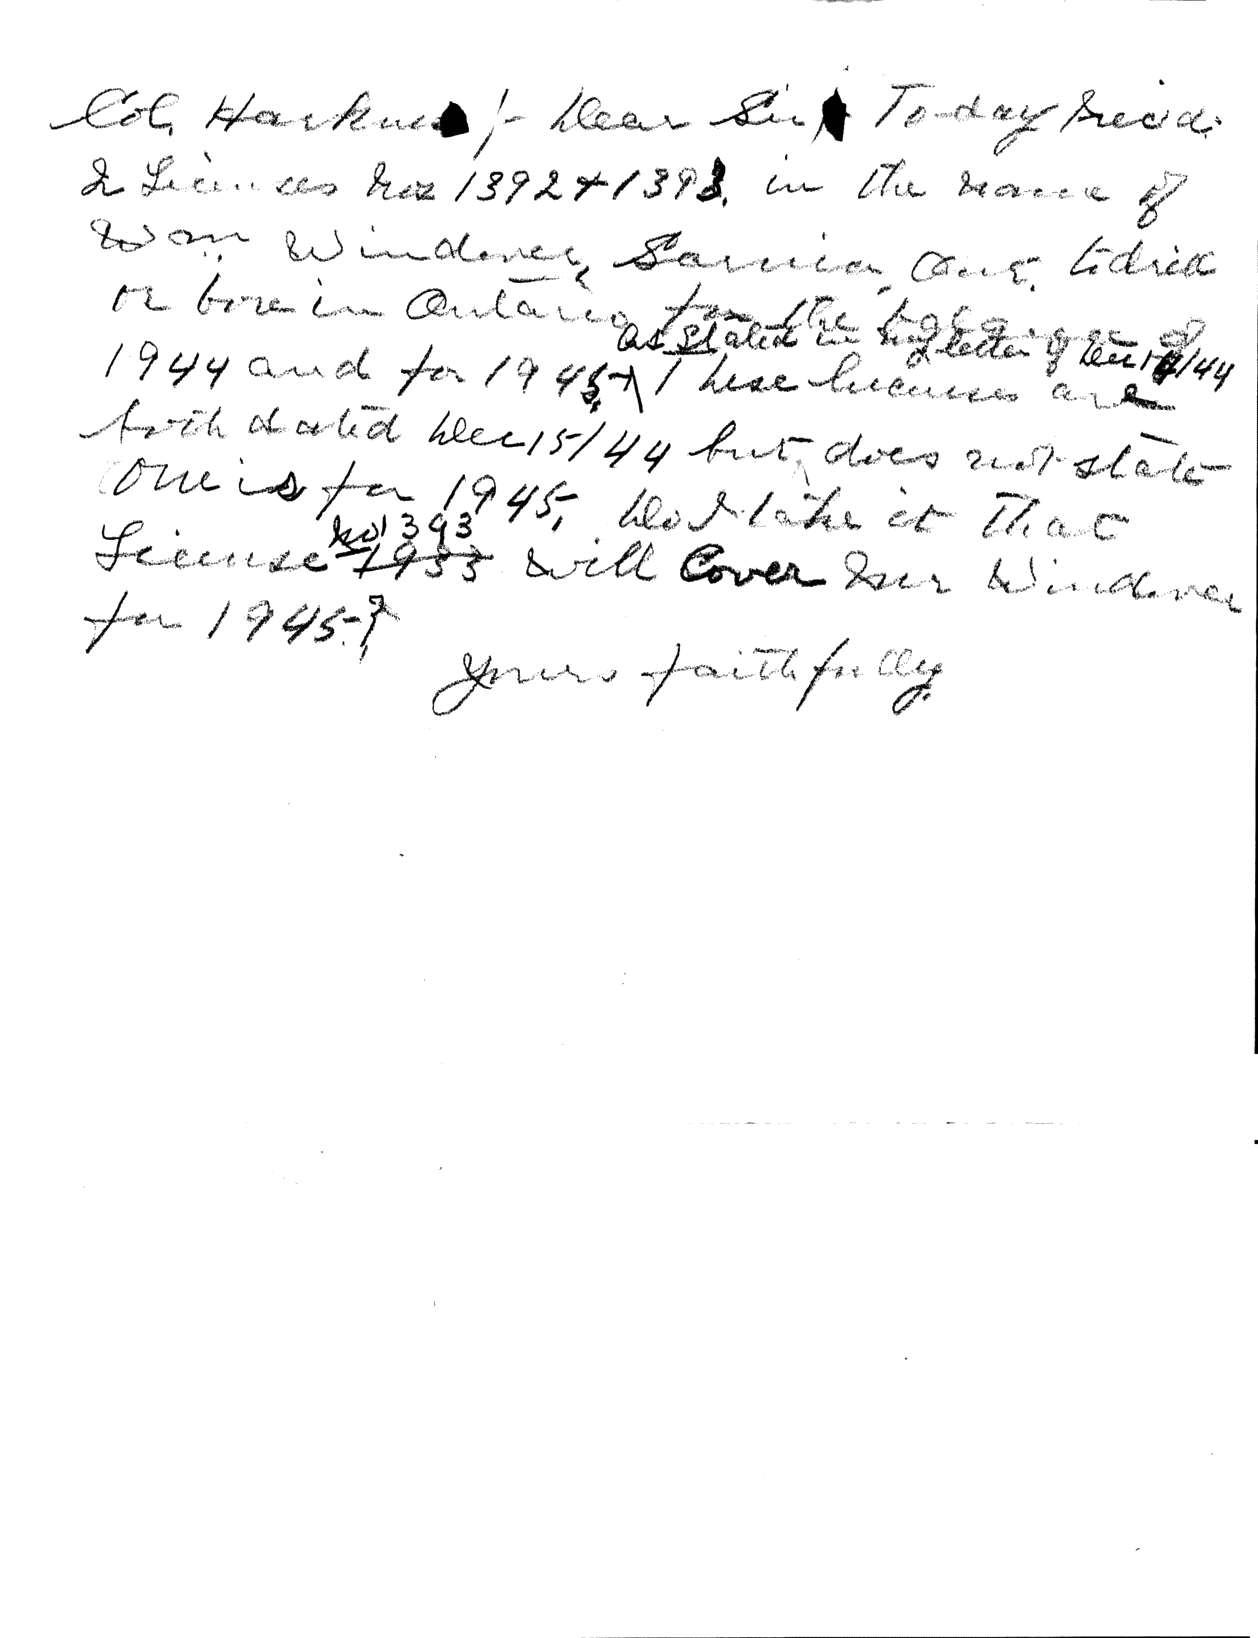 Col. Harkness /- Dear Sir, To-day Recvd.
2 Licenses Nos 1392 + 1393, in the name of
Wm. Windover, Sarnia, Ont. to drill
or bore in Ontario for the balance of
as stated in my letter of Dec 14/44
1944 and for 1945, + These licenses are
both dated Dec 15/44 but, does not state
one is for 1945, Do I take it that
No 1393
License 1933 will Cover Mr Windover
for 1945.?
Yours faithfully.